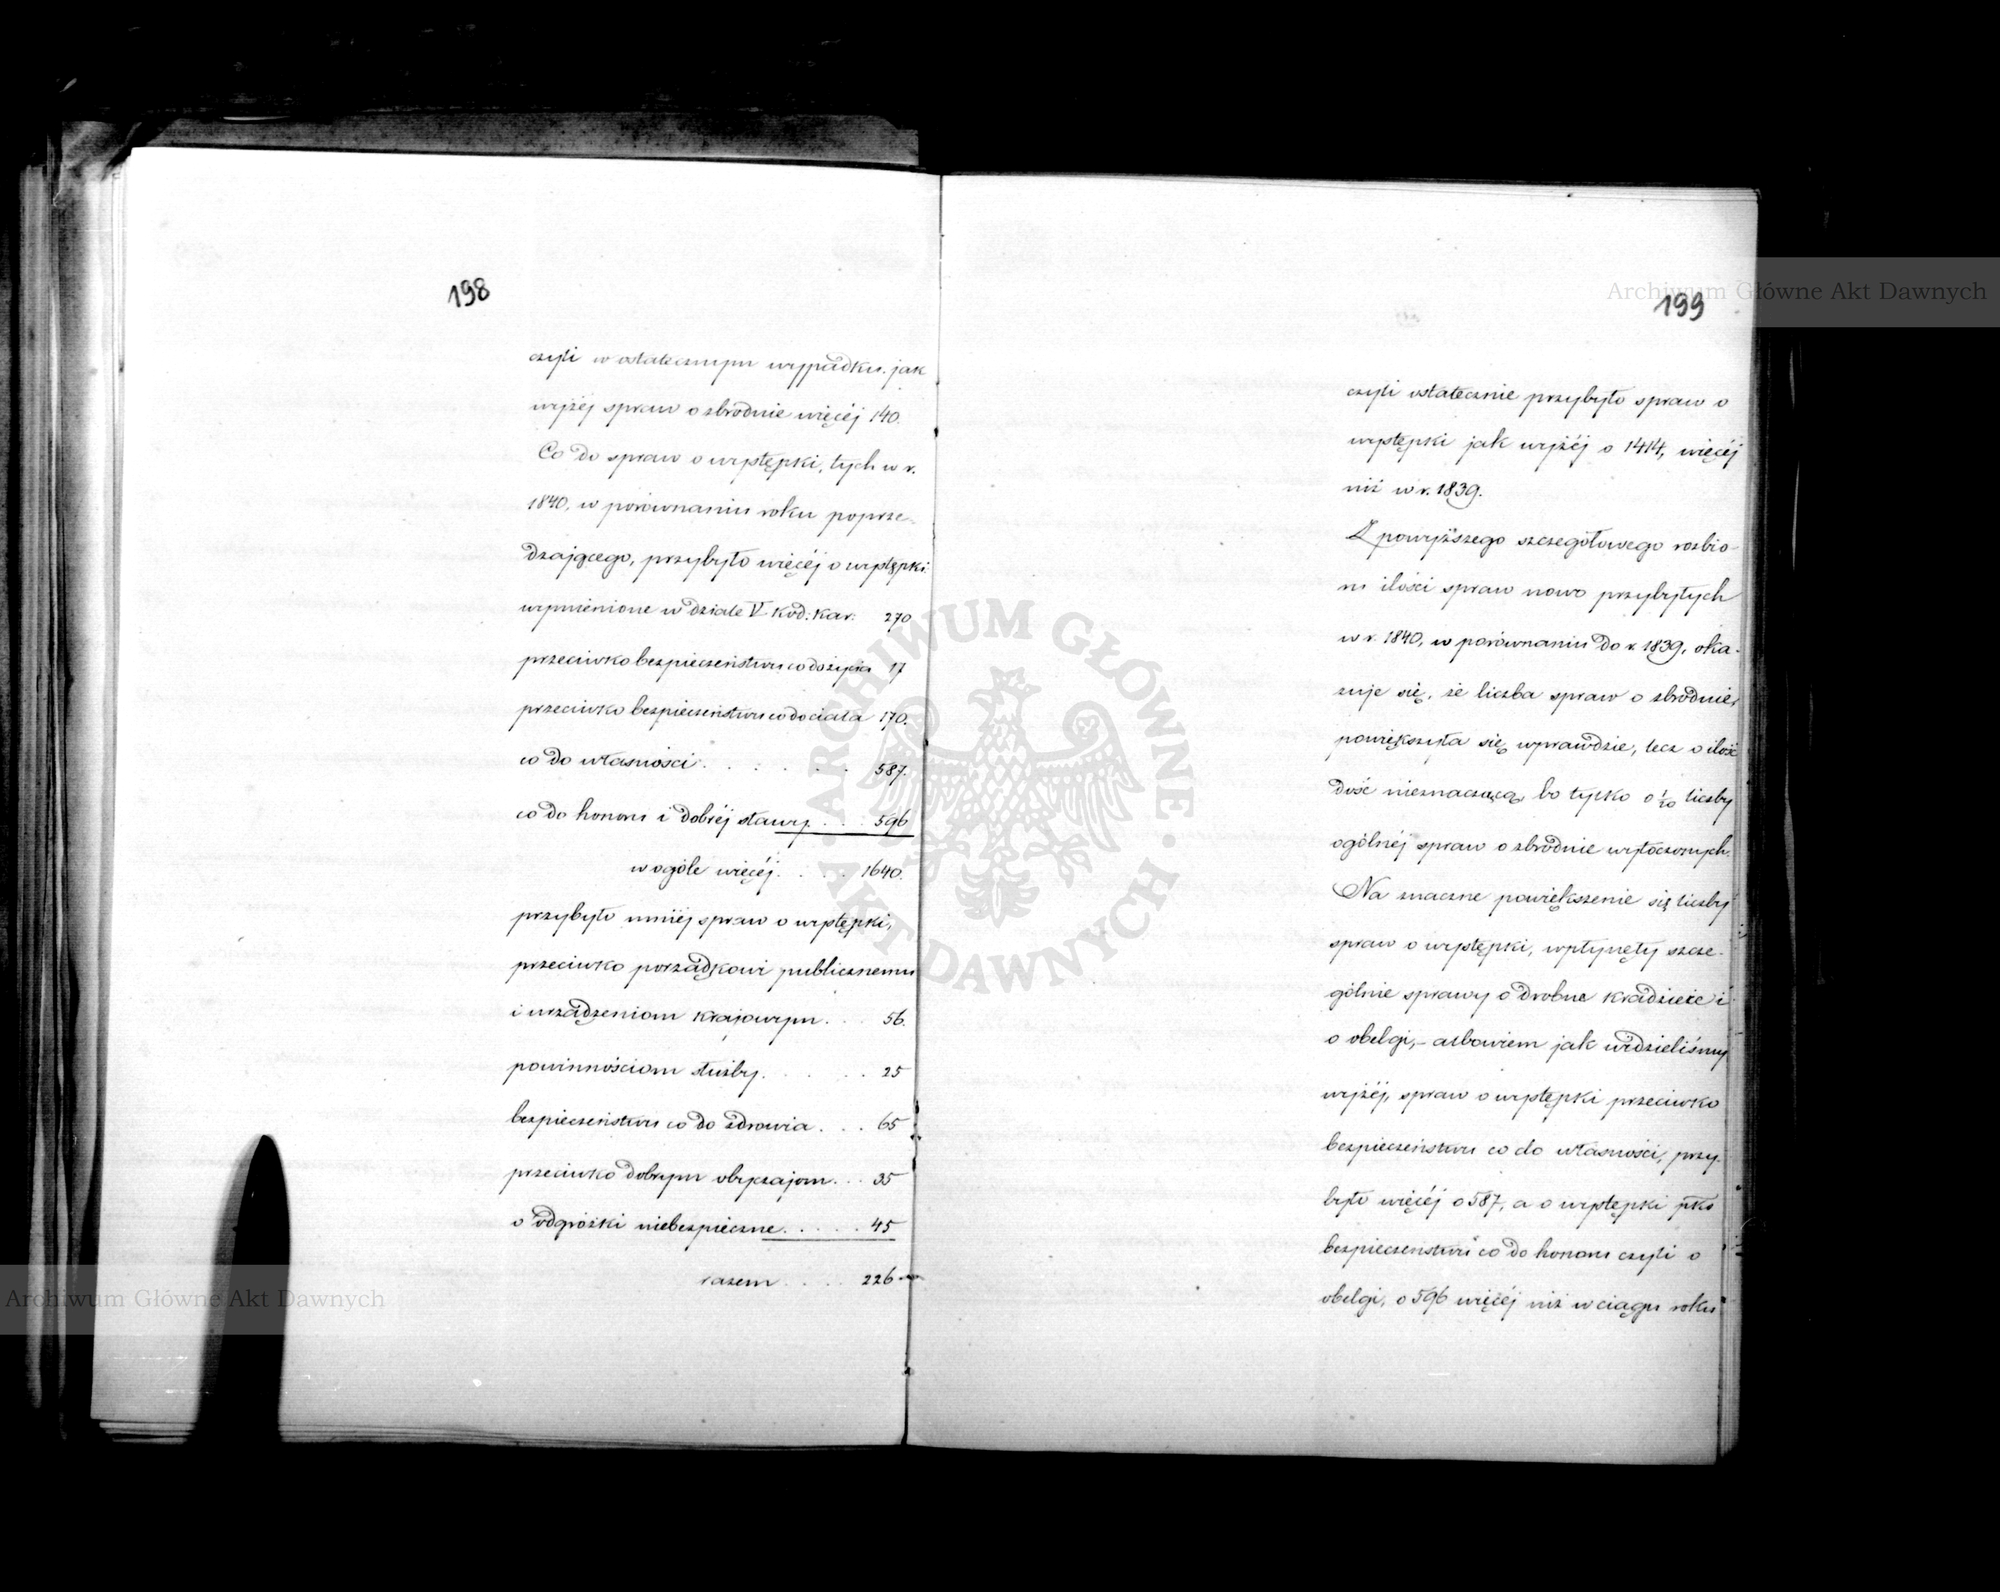 198
czyli w ostatecznym wypadku jak
wyżej spraw o zbrodnie więcéj 140.
Co do spraw o występki, tych w r.
1840, w porównaniu roku poprze-
dzającego, przybyło więcéj o występki
wymienione w dziale V kod: kar: 270
przeciwko bezpieczeństwu co do życia 17
przeciwko bezpieczeństwu co do ciała 170.
co do własności . . . . . . 587.
co do honoru i dobréj sławy . . . 596
w ogóle więcéj . . . . 1640.
przybyło mniéj spraw o występki,
przeciwko porządkowi publicznemu
i urządzeniom krajowym . . . 56.
powinnościom służby . . . . . 25
bezpieczeństwu co do zdrowia . . . 65
przeciwko dobrym obyczajom . . . 35
o odgróżki niebezpieczne . . . . . 45
razem . . . . 226
199
czyli ostatecznie przybyło spraw o
występki jak wyżéj o 1414, więcéj
niż w r. 1839.
Z powyższego szczegółowego rozbio-
ru ilości spraw nowo przybyłych
w r. 1840, w porównaniu do r. 1839, oka-
zuje się, że liczba spraw o zbrodnie,
powiększyła się wprawdzie, lecz o ilość
dość nieznaczącą, bo tylko o 1/20 liczby
ogólnéj spraw o zbrodnie wytoczonych.
Na znaczne powiększenie się liczby
spraw o występki, wpłynęły szcze-
gólnie sprawy o drobne kradzieże i
o obelgi, – albowiem jak widzieliśmy
wyżéj, spraw o występki przeciwko
bezpieczeństwu co do własności, przy-
było więcéj o 587, a o występki pko
bezpieczeństwu co do honoru czyli o
obelgi, o 596 więcéj niż w ciągu roku
Archiwum Główne Akt Dawnych
Archiwum Główne Akt Dawnych
ARCHIWUM GŁÓWNE · AKT DAWNYCH ·